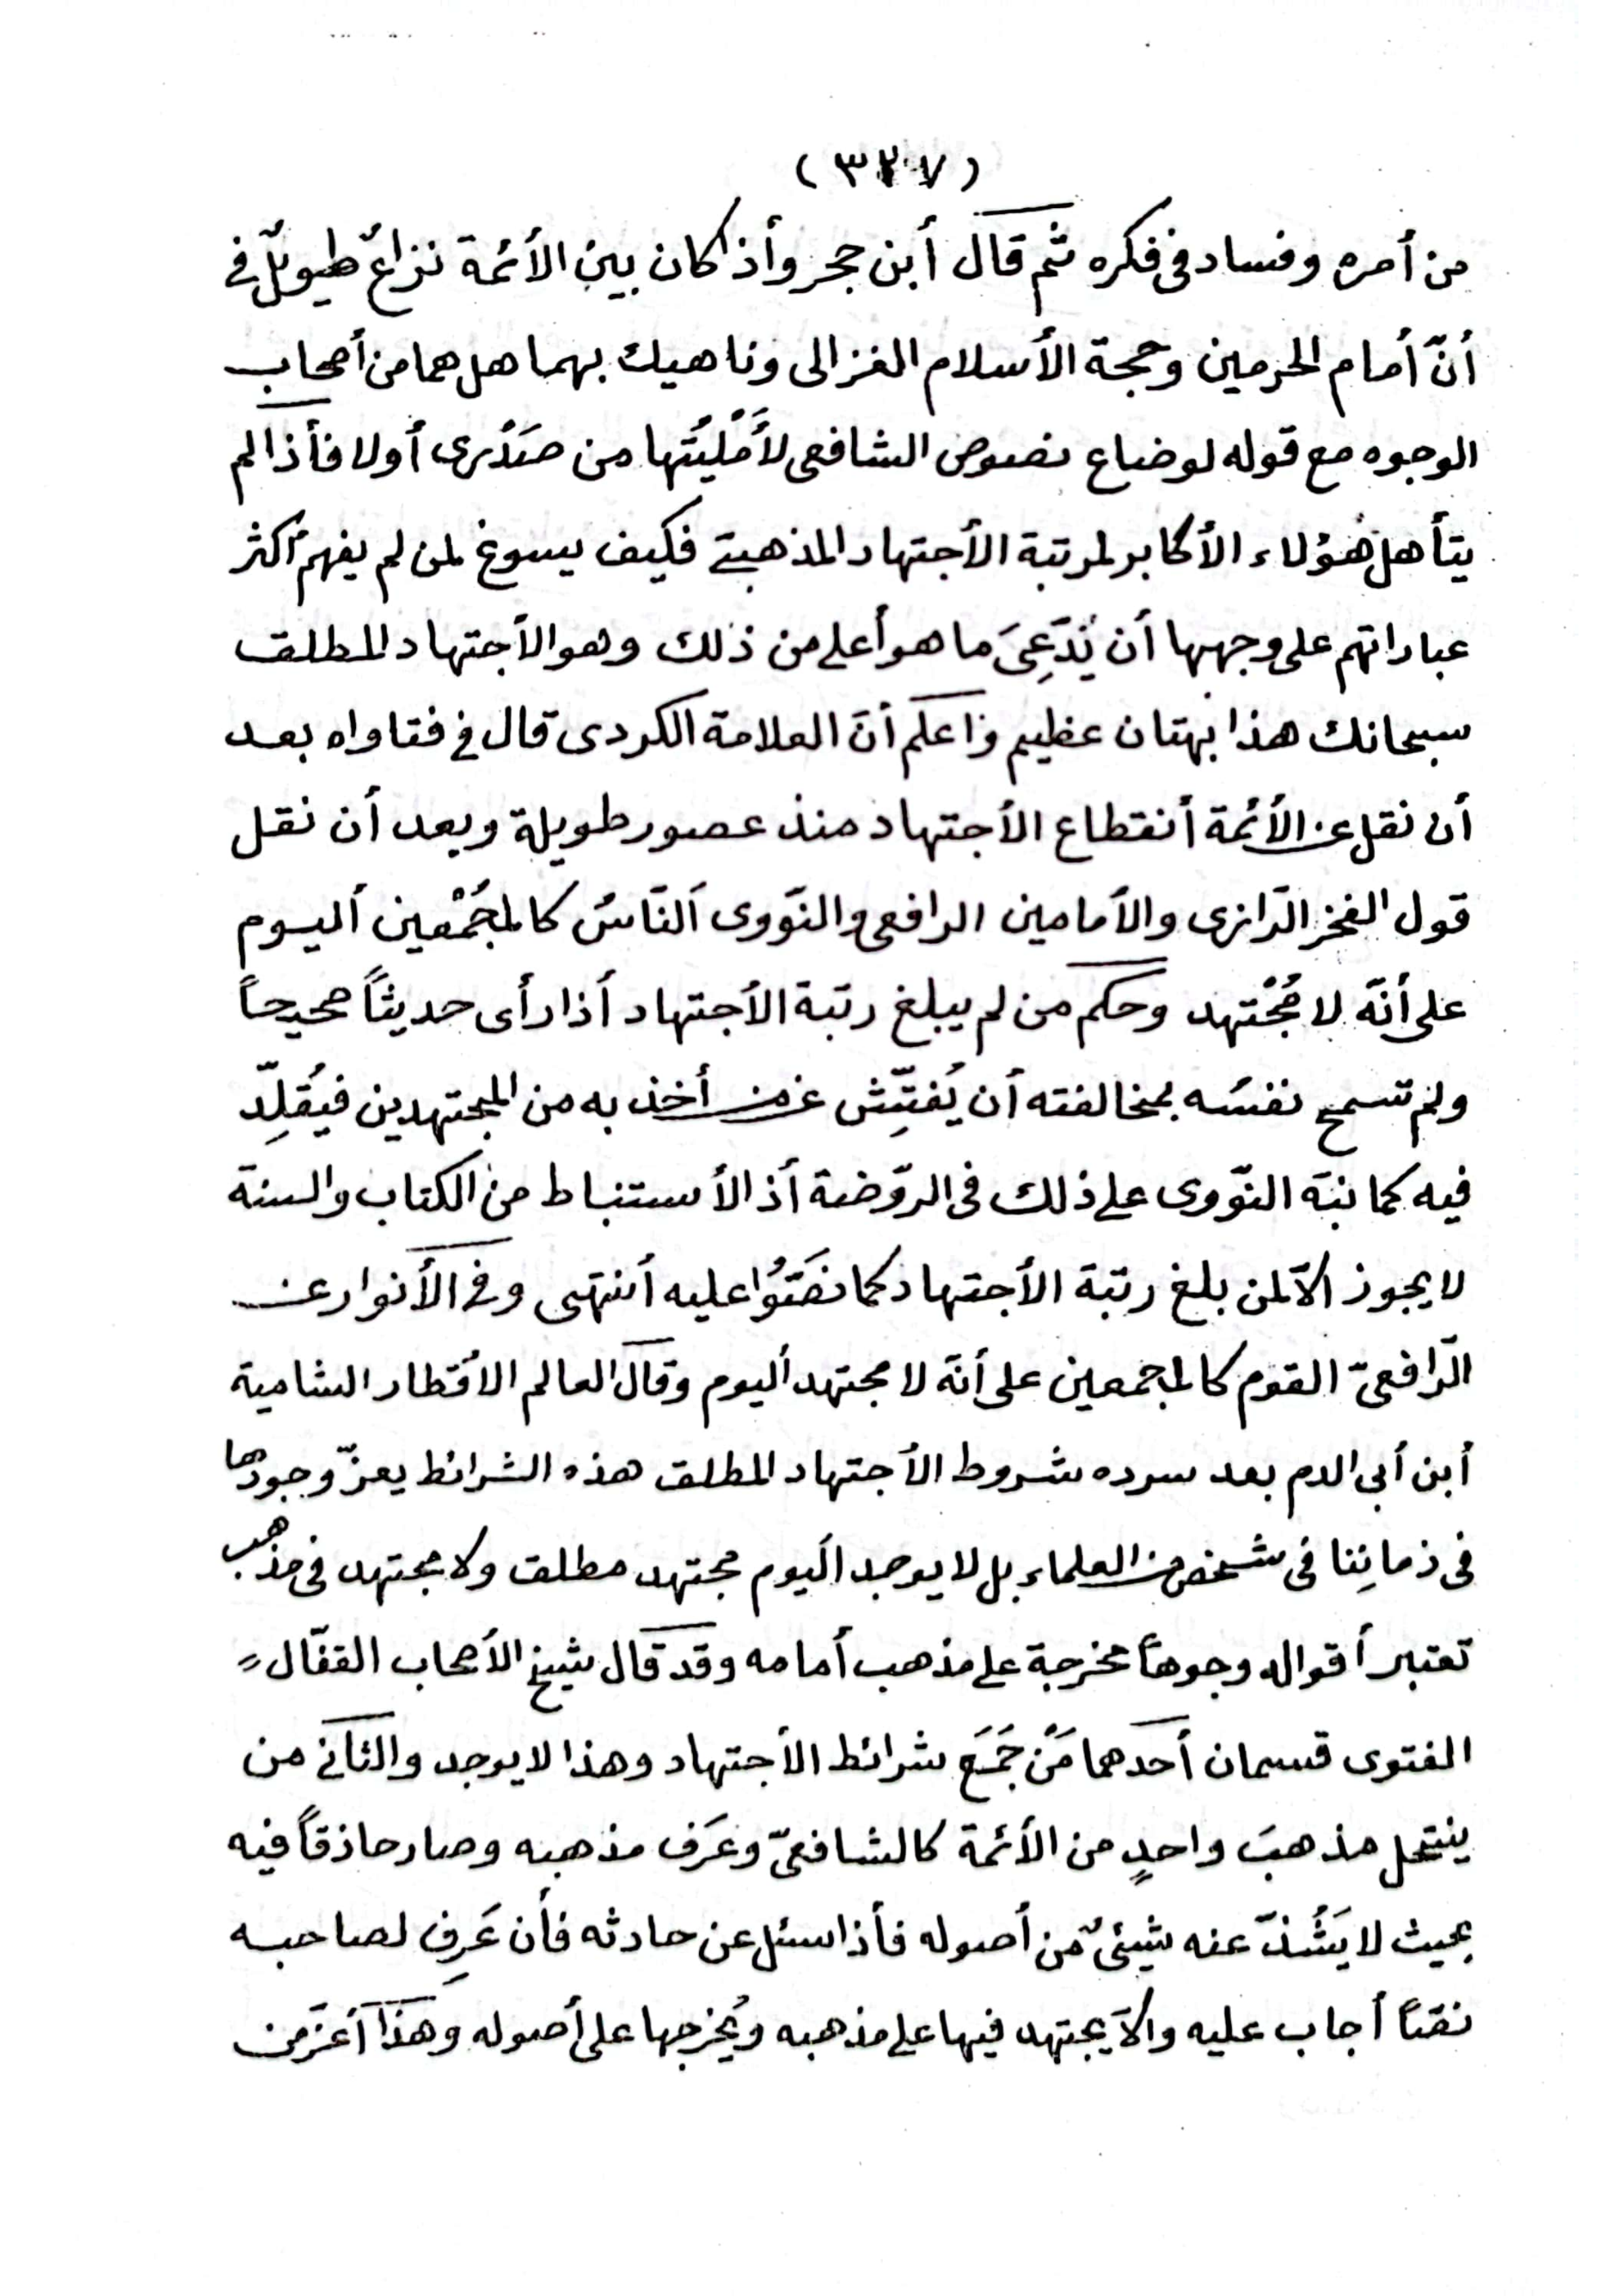 (٣٢٧)
من أمره وفساد فى فكره ثم قال أبن حجر وأذا كان بين الأئمة نزاعٌ طويلٌ فى
أنّ أمام الحرمين وحجة الأسلام الغزالى وناهيك بهما هل هما من أصحاب
الوجوه مع قوله لو ضاع نصوص الشافعى لأَمْلَيْتُها من صَدْرى أولا فأذا لم
يتأهل هٰؤلاء الأكابر لمرتبة الأجتهاد المذهبىّ فكيف يسوغ لمن لم يفهم أكثر
عباراتهم على وجهها أن يَدَّعِىَ ما هو أعلى من ذلك وهو الأجتهاد المطلق
سبحانك هذا بهتان عظيم وأعلم أنّ العلامة الكردى قال فى فتاواه بعد
أن نقل عن الأئمة أنقطاع الأجتهاد منذ عصور طويلة وبعد أن نقل
قول الفخر الرّازى والأمامين الرافعى والنّووى اَلنّاسُ كالمجُمْعين أليوم
على أنّه لا مُجْتهد وحكم من لم يبلغ رتبة الأجتهاد أذا رأى حديثاً صحيحاً
ولم تسمح نفسُه بمخالفته أن يُفتِّش عن من أخذ به من المجتهدين فيُقلِّد
فيه كما نبّه النّووى على ذلك فى الرّوضة أذ الأستنباط من الكتاب والسنة
لا يجوز الاّ لمن بلغ رتبة الأجتهاد كما نصَّوُا عليه أنتهى وفى الأنوار عن
الرّافعىّ القوم كالمجمعين على أنّه لا مجتهد أليوم وقال العالم الأقطار الشامية
أبن أبى الدم بعد سرده شروط الأجتهاد المطلق هذه الشرائط يعزّ وجودها
فى زمانِنا فى شخص من العلماء بل لا يوجد اليوم مجتهد مطلق ولا مجتهد فى مذهب
تعتبر أقواله وجوهاً مخرجة على مذهب أمامه وقد قال شيخ الأصحاب القفّال
الفتوى قسمان أحدهما مَنْ جَمَعَ شرائط الأجتهاد وهذا لا يوجد والثانى من
ينتحل مذهبَ واحدٍ من الأئمة كالشافعىّ وعَرَف مذهبه وصار حاذقاً فيه
بحيث لا يَشُذّ عنه شيئىٌ من أصوله فأذا سئل عن حادثه فأن عَرِف لصاحبه
نصّاً أجاب عليه والاّ يجتهد فيها على مذهبه ويُخرجها على أصوله وهذا أعزّ من